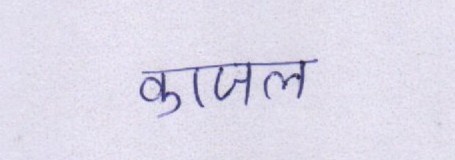 काजल